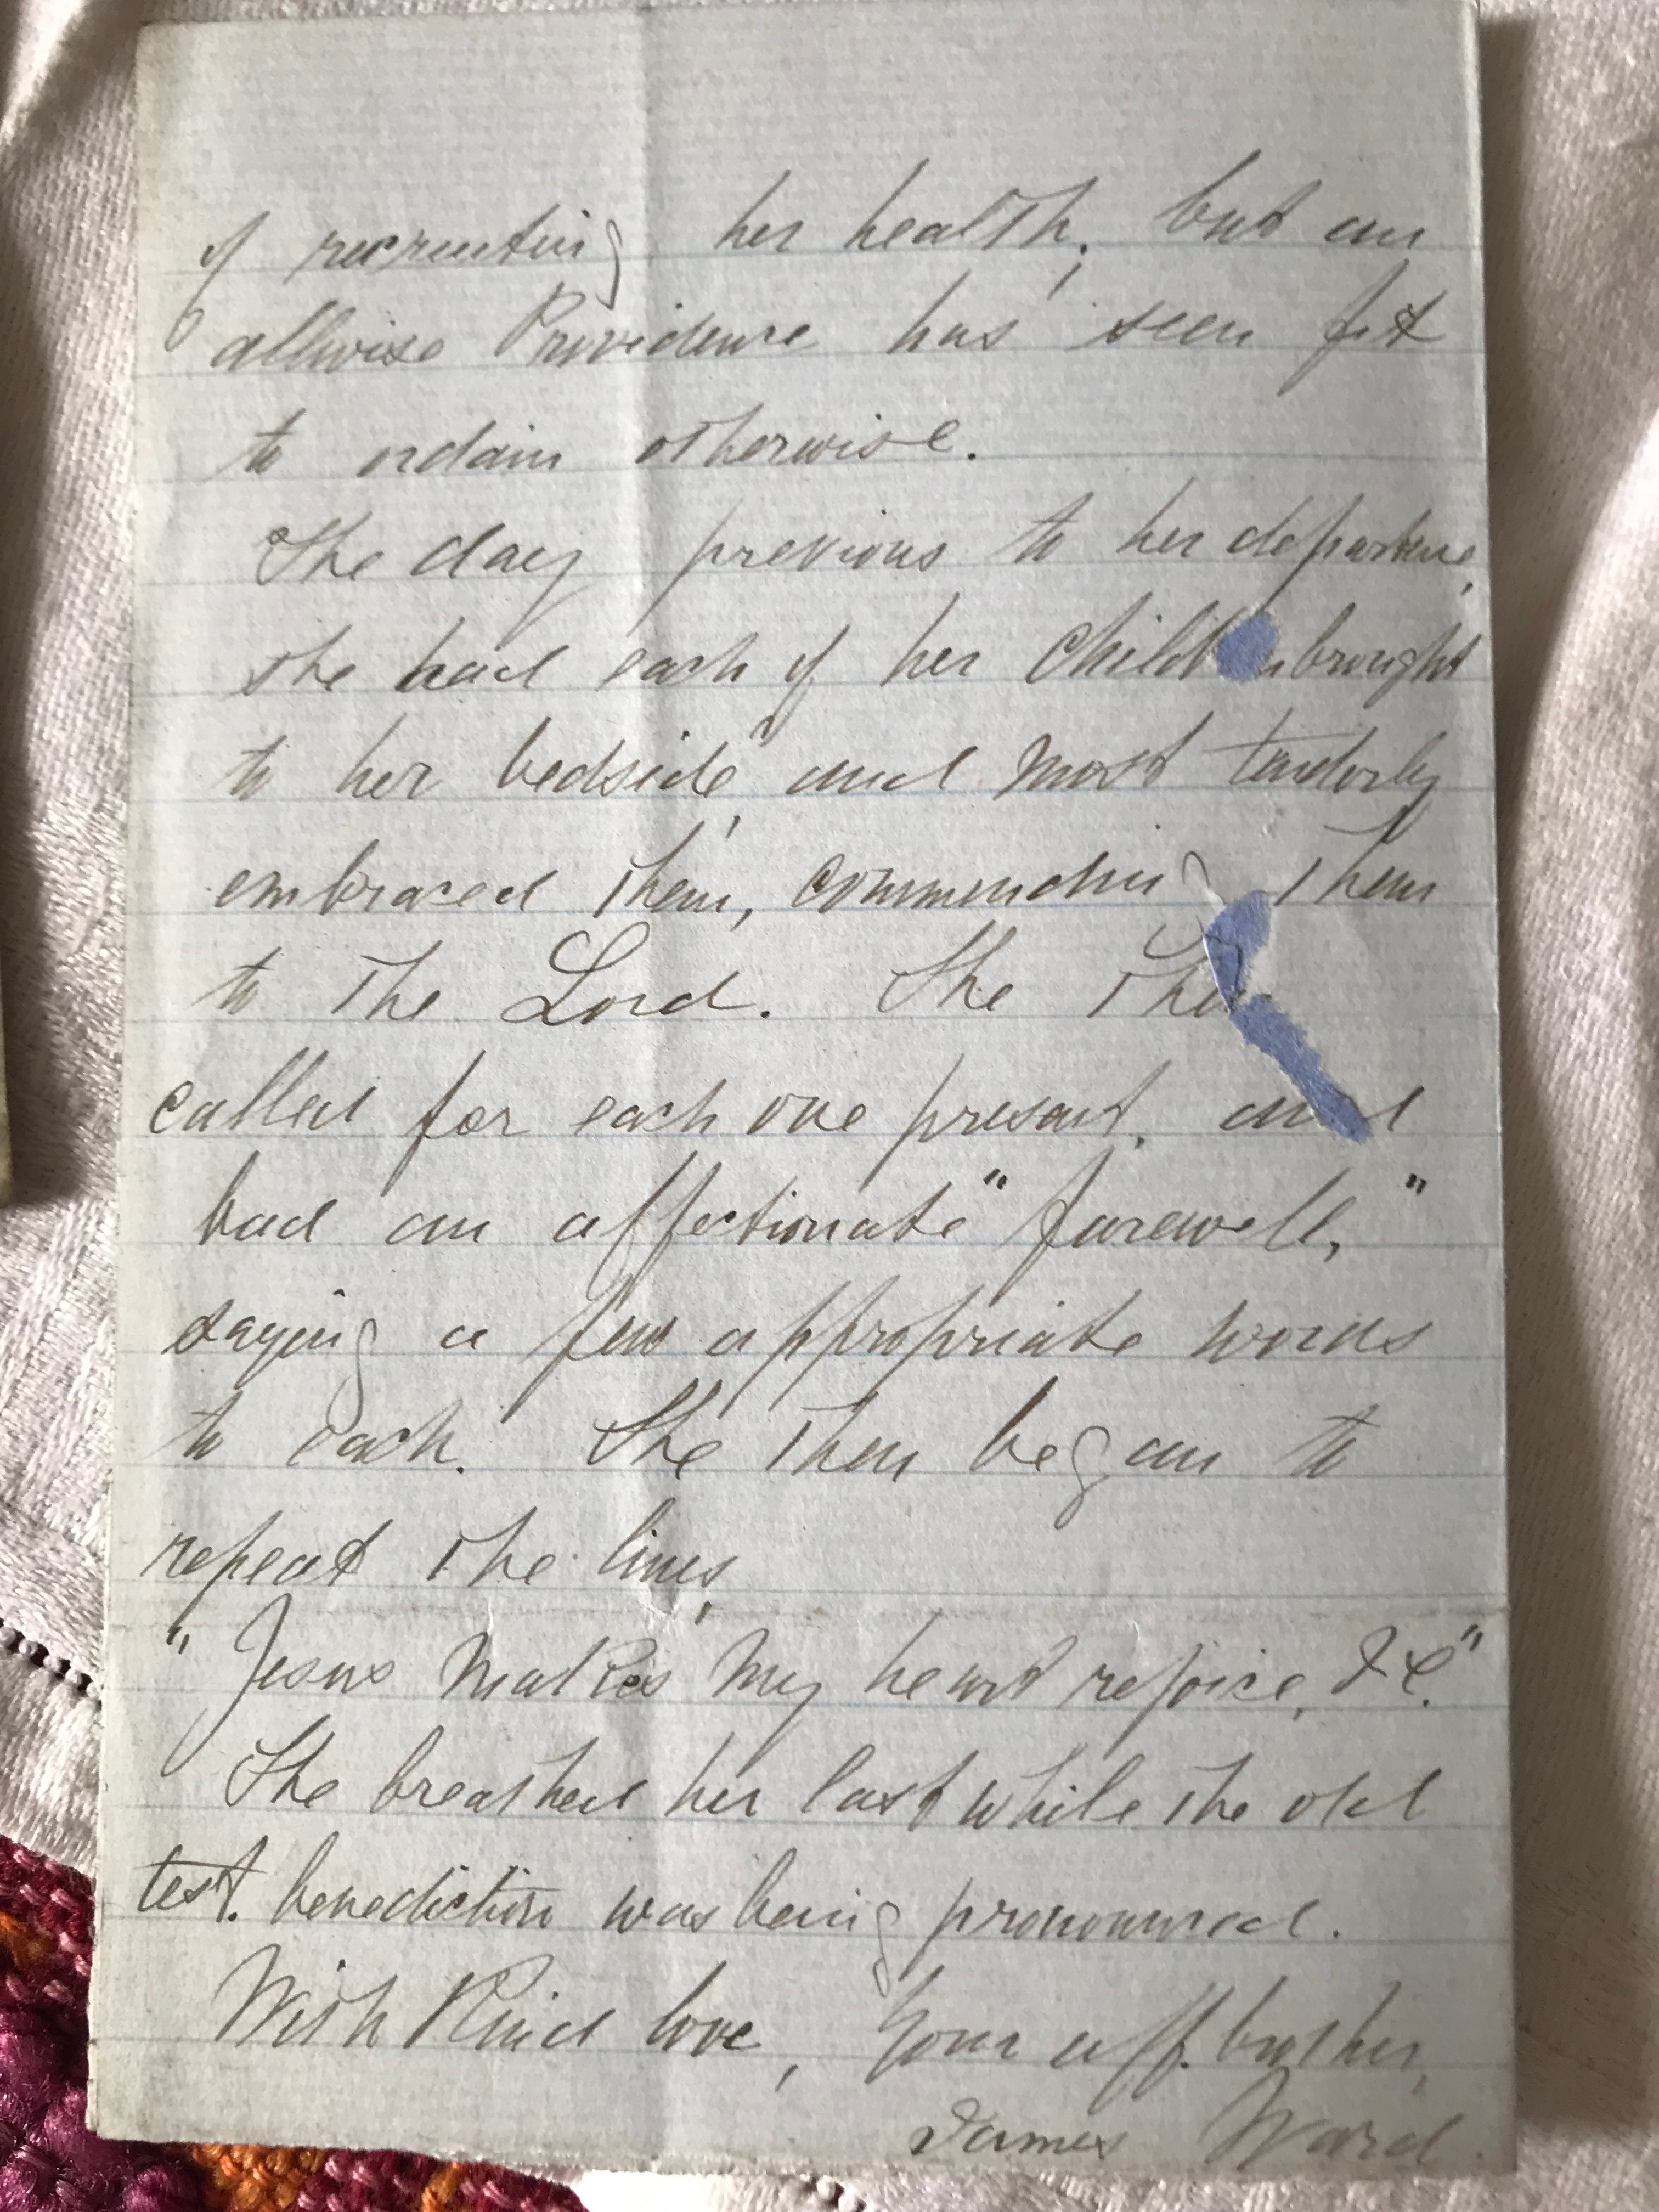 of recruiting her health, but an
allwise Providence has seen fit
to ordain otherwise.
The day previous to her departure,
she had each of her brought
to her bedside, and most tenderly
embraced them, commending them
to the Lord. She
called for each one present, and
bad an affectionate "farewell,"
saying a few appropriate words
to each. She then began to
repeat the lines,
"Jesus makes my heart rejoice, &c."
She breathed her last while the old
test. benediction was being pronounced.
With kind love, Your aff. brother,
James Ward.